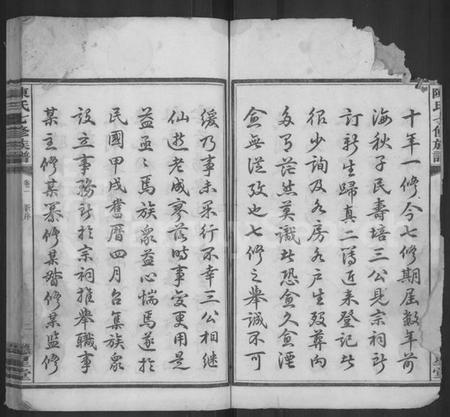 陳氏七修族譜
十年一修今七修期屆數年前
海秋子民壽培三公見宗祠所
訂新生歸真二簿近來登記些
很少詢及各房各戶生殁葬向
多有茫然莫識些恐愈久愈湮
愈無從攷也七修之舉誠不可
緩乃事未果行不幸三公相繼
仙逝老成寥落時事變更用是
益亟亟焉族衆益心惴焉遂於
民國甲戌舊曆四月召集族衆
設立事務所於宗祠推舉職事
某主修某纂修某督修某監修
陳氏七修族譜
卷一